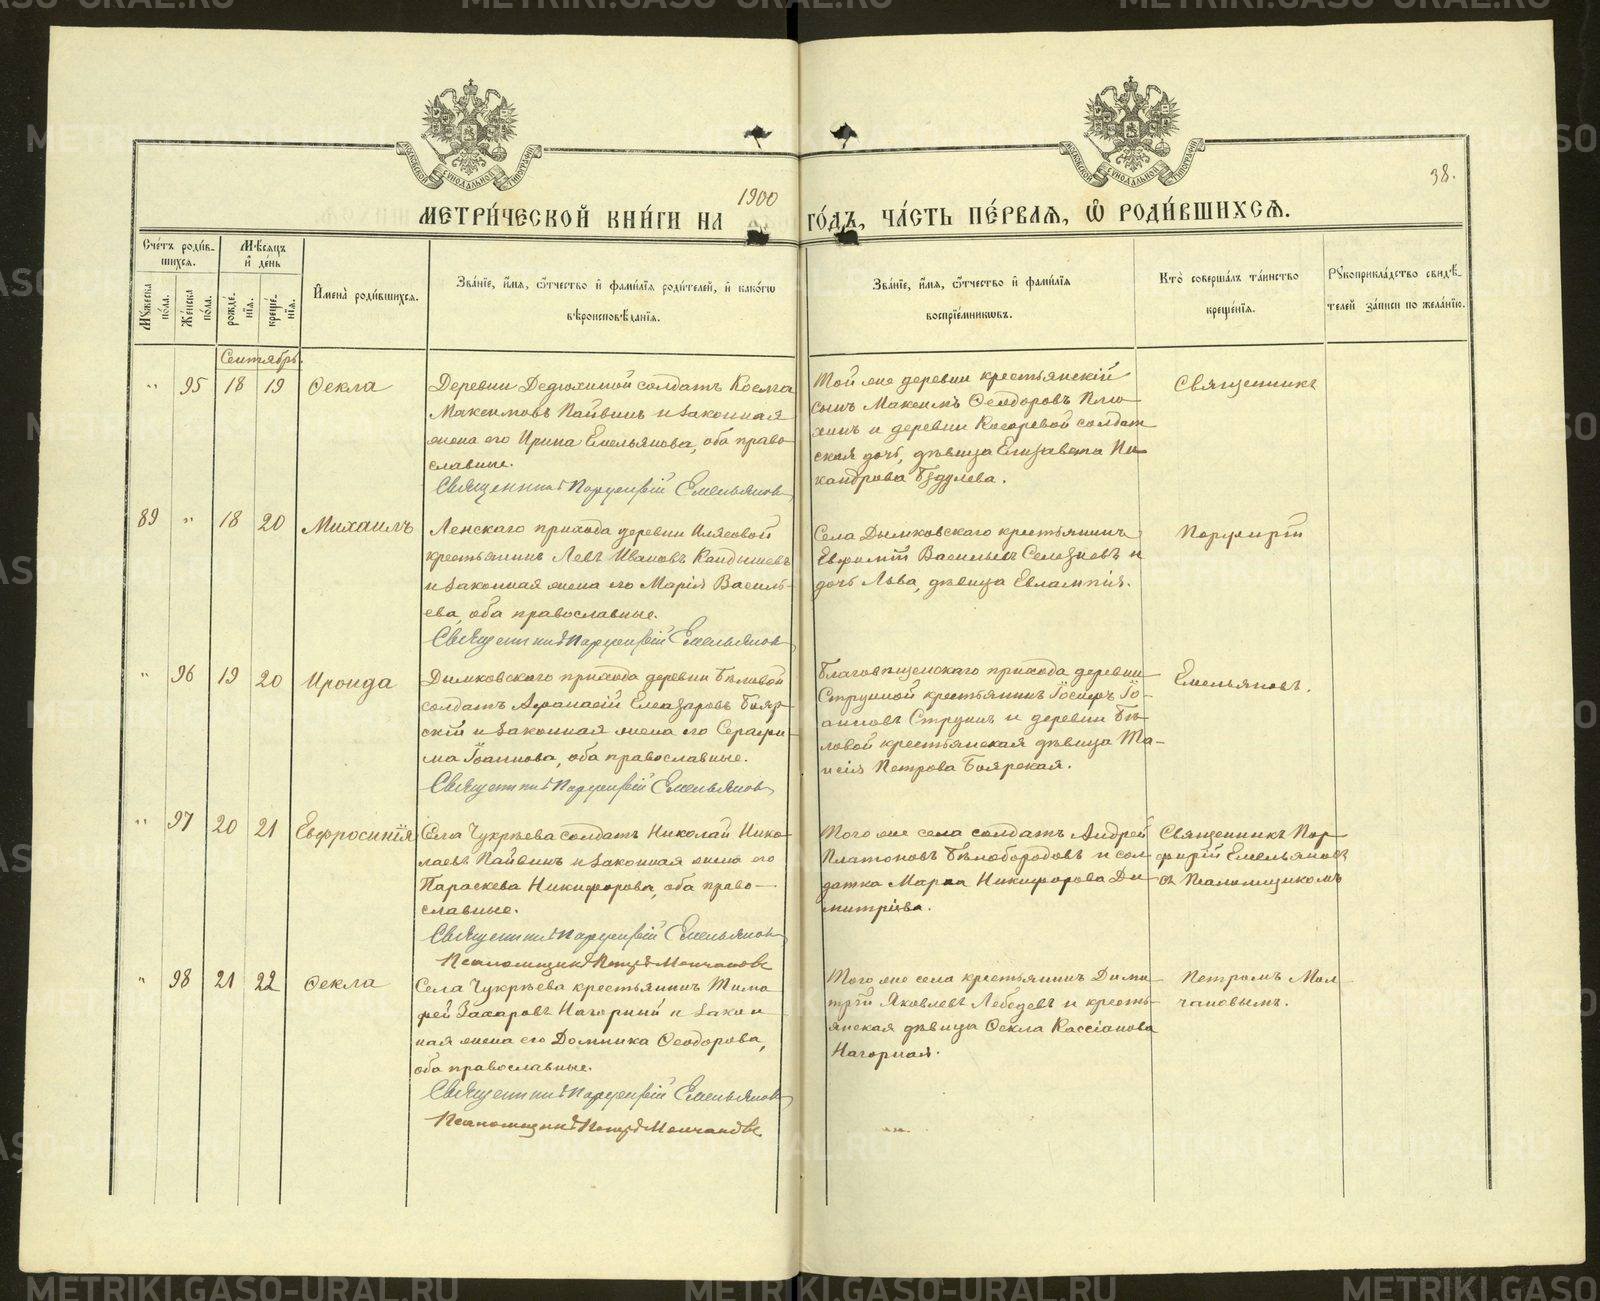 METRIKI.GASO-URAL.RU
МОСКОВСКОЙ СѴНОДАЛЬНОЙ ТИПОГРАФІИ
МОСКОВСКОЙ СѴНОДАЛЬНОЙ ТИПОГРАФІИ
38.
1900
МЕТРИ́ЧЕСКОЙ КНИ́ГИ НА ГО́ДЪ, ЧА́СТЬ ПЕ́РВАѦ, Ѡ҆ РОДИ́ВШИХСѦ.
Сче́тъ роди́в-
шихсѧ.
Мꙋ́жеска по́ла.
Же́нска по́ла.
Мѣ́сѧцъ и҆ де́нь
рожде́-
нїѧ.
креще́-
нїѧ.
И҆мена̀ роди́вшихсѧ.
Зва́нїе, и҆́мѧ, ѻ҆́тчество и҆ фами́лїѧ роди́телей, и҆ како́гѡ
вѣроисповѣ́данїѧ.
Зва́нїе, и҆́мѧ, ѻ҆́тчество и҆ фами́лїѧ
воспрїе́мникѡвъ.
Кто̀ соверша́лъ та́инство
креще́нїѧ.
Рꙋкоприкла́дство свидѣ́-
телей за́писи по жела́нїю.
Сентябрь.
" 95 18 19 Ѳекла
Деревни Дедюхиной солдатъ Косьма
Максимовъ Пайвинъ и законная
жена его Ирина Емельянова, оба право-
славные.
Священникъ Порфирій Емельяновъ
Той же деревни крестьянскій
сынъ Максимъ Ѳеодоровъ Плю-
хинъ и деревни Косаревой солдат-
ская дочь, дѣвица Елизавета Ни-
кандрова Будулева.
Священникъ
89 " 18 20 Михаилъ
Ленскаго прихода деревни Илясовой
крестьянинъ Левъ Ивановъ Кандышевъ
и законная жена его Марія Василь-
ева, оба православные.
Священникъ Порфирій Емельяновъ
Села Дымковскаго крестьянинъ
Евфимій Васильевъ Селезневъ и
дочь Льва, дѣвица Евлампія.
Порфирій
" 96 19 20 Ираида
Дымковскаго прихода деревни Бѣловой
солдатъ Аѳанасій Елеазаровъ Бояр-
скій и законная жена его Серафи-
ма Іоаннова, оба православные.
Священникъ Порфирій Емельяновъ
Благовѣщенскаго прихода деревни
Струниной крестьянинъ Іосифъ Іо-
анновъ Струнинъ и деревни Бѣ-
ловой крестьянская дѣвица Та-
исія Петрова Боярская.
Емельяновъ.
" 97 20 21 Евфросинія
Села Чукрѣева солдатъ Николай Нико-
лаевъ Пайвинъ и законная жена его
Параскева Никифорова, оба право-
славные.
Священникъ Порфирій Емельяновъ
Псаломщикъ Петръ Молчановъ
Того же села солдатъ Андрей
Платоновъ Бѣлобородовъ и сол-
датка Марѳа Никифорова Ди-
митріева.
Священникъ Пор-
фирій Емельяновъ
съ Псаломщикомъ
" 98 21 22 Ѳекла
Села Чукрѣева крестьянинъ Тимо-
фей Захаровъ Нагорный и закон-
ная жена его Домника Ѳеодорова,
оба православные.
Священникъ Порфирій Емельяновъ
Псаломщикъ Петръ Молчановъ
Того же села крестьянинъ Дими-
трій Яковлевъ Лебедевъ и кресть-
янская дѣвица Ѳекла Кассіанова
Нагорная.
Петромъ Мол-
чановымъ.